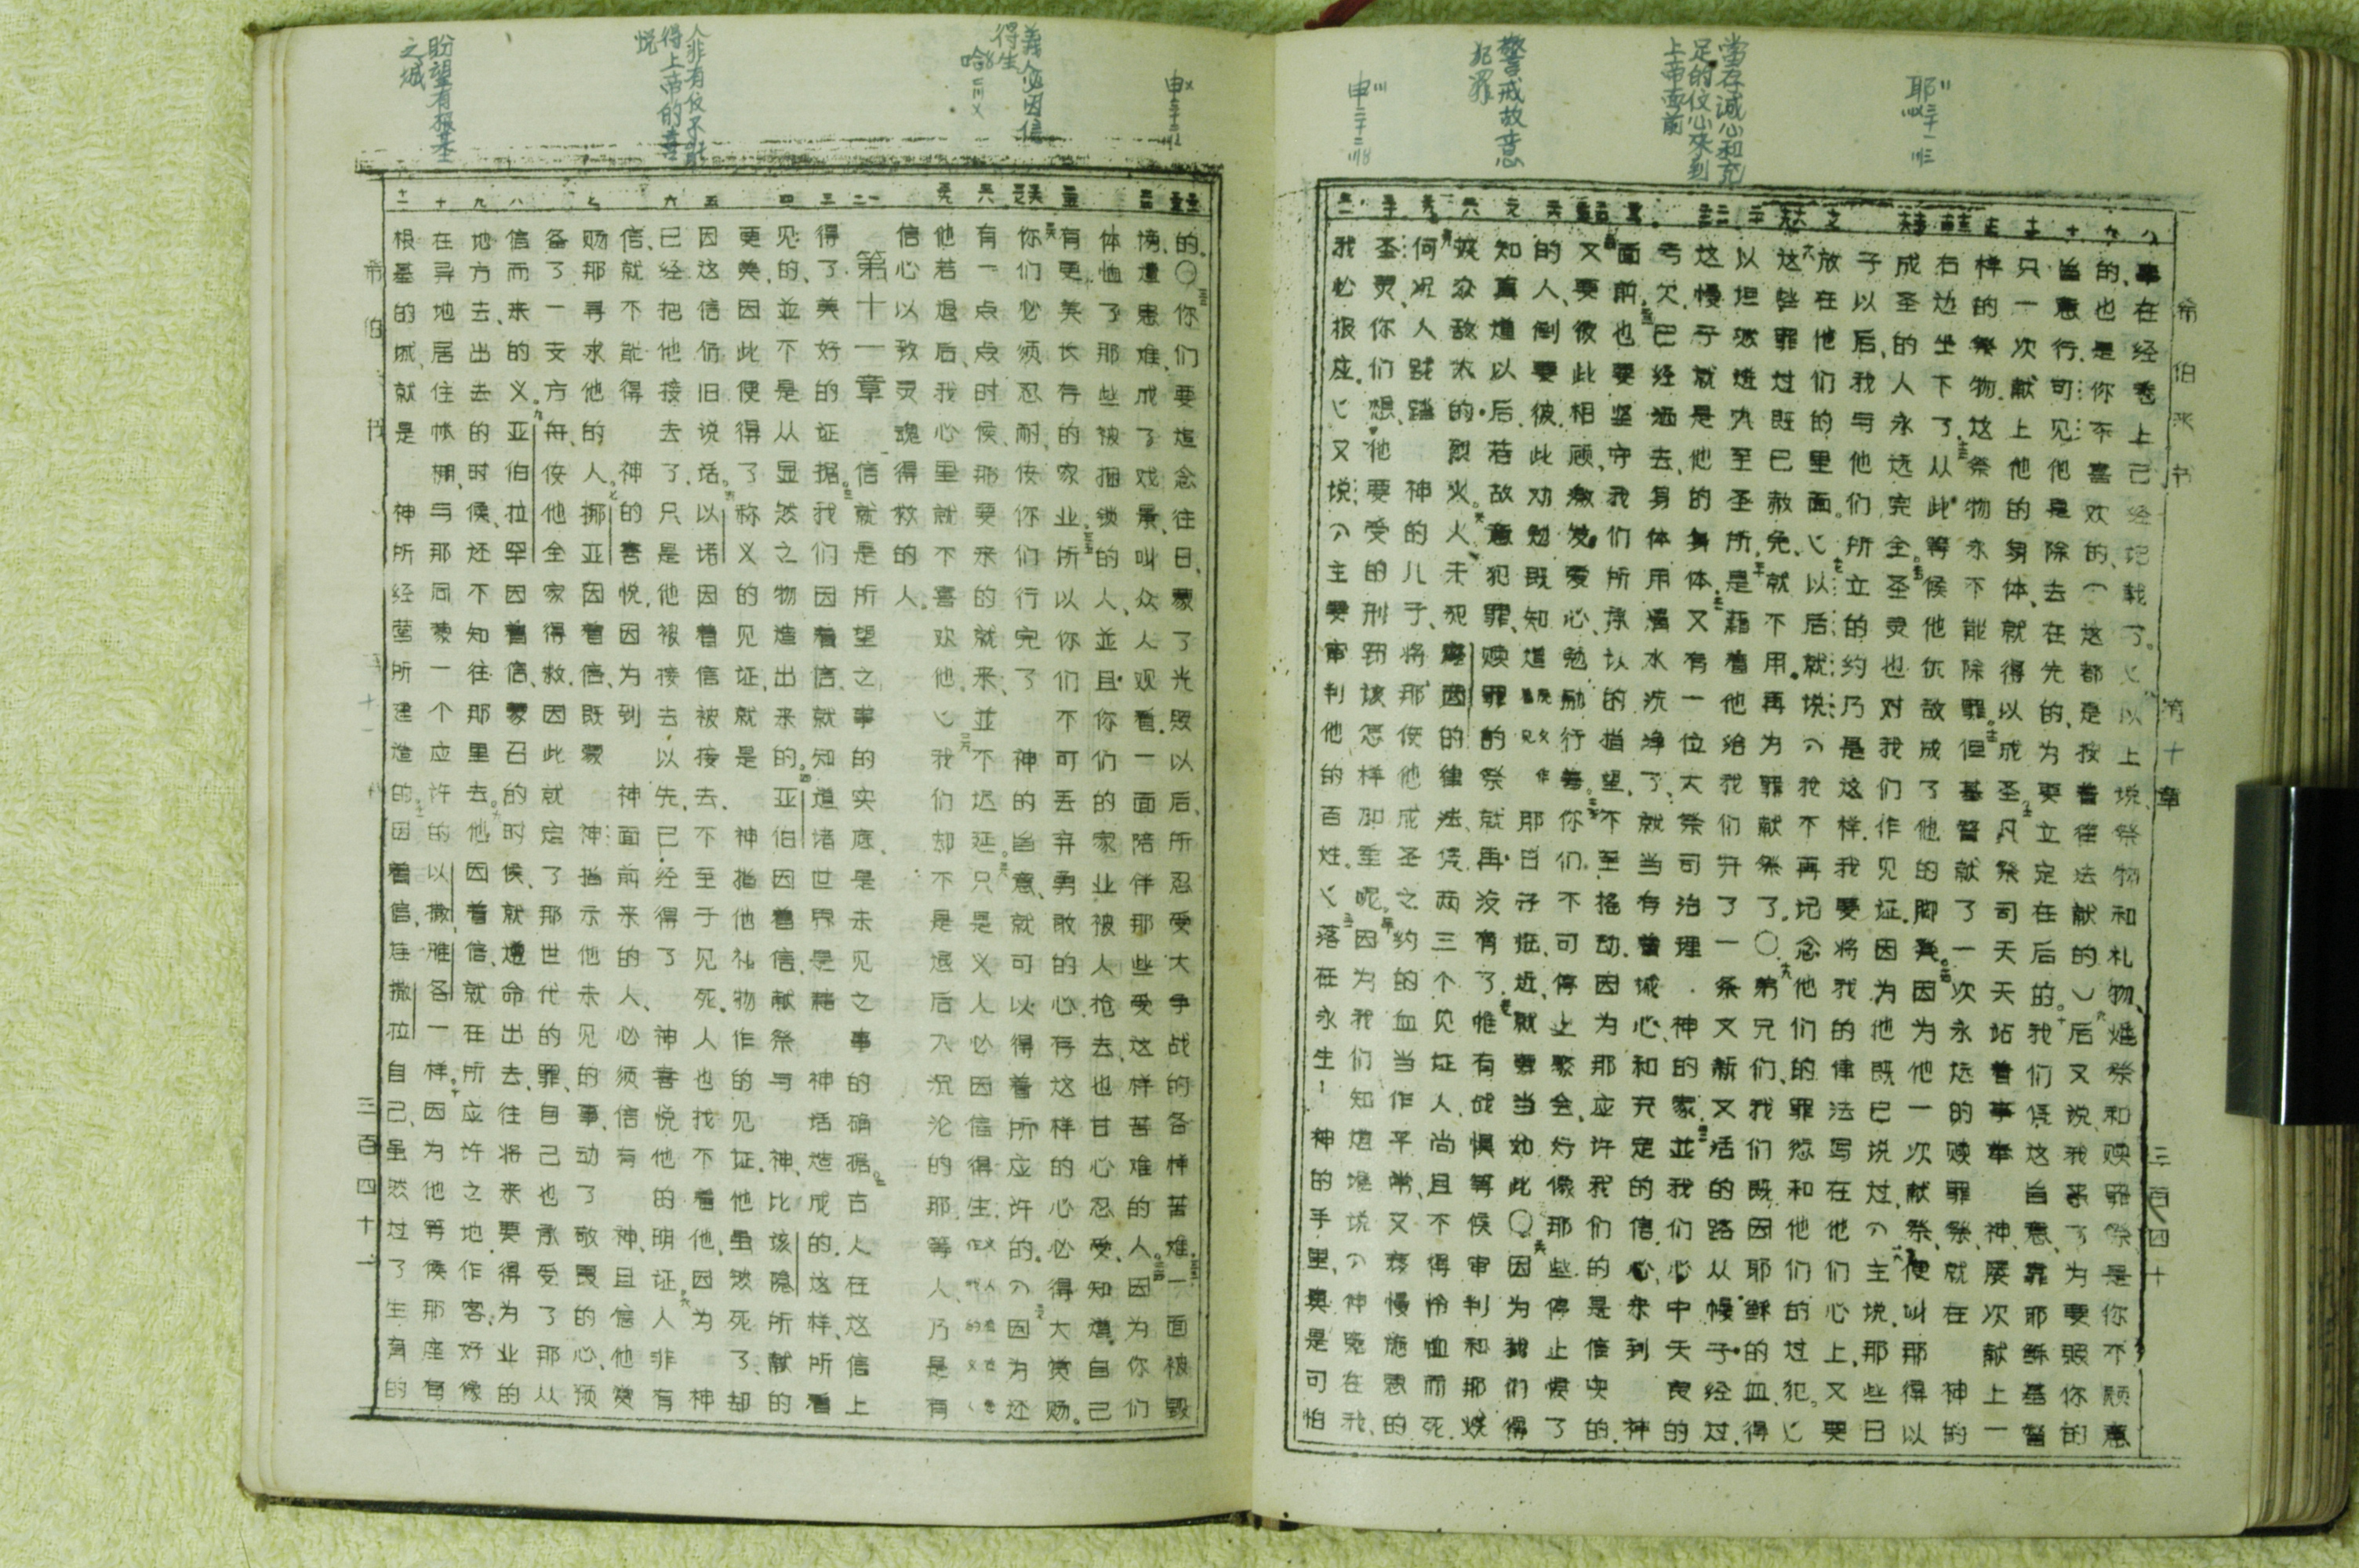 耶三十一
當存诚心和充
足的信心來到
上帝面前
警戒故意
犯罪
申三十二
希伯来书
第十章
三百四十
事在经卷上己经记载了。以上说、祭物和礼物、燔祭和赎罪祭是你不愿
的、也是你不喜欢的、(这都是按着律法献的)后又说、我来了为要照你的
旨意行.可见他是除去在先的、为要立定在后的。我们凭这旨意、靠耶稣基督
只一次献上他的身体、就得以成圣。凡祭司天天站着事奉 神、屡次献上一
样的祭物.这祭物永不能除罪。但基督献了一次永远的赎罪祭、就在 神的
右边坐下了.从此等候他仇敌成了他的脚凳。因为他一次献祭、便叫那得以
成圣的人永远完全。圣灵也对我们作见证.因为他既已说过、主说、那些日
子以后、我与他们所立的约乃是这样.我要将我的律法写在他们心上、又要
放在他们的里面。以后就说、我不再记念他们的罪愆和他们的过犯。
这些罪过既已赦免、就不用再为罪献祭了。○弟兄们、我们既因耶稣的血、得
以坦然进入至圣所.是藉着他给我们开了一条又新又活的路从幔子经过.
这幔子就是他的身体.又有一位大祭司治理 神的家.並我们心中天良的
亏欠已经洒去、身体用清水洗净了、就当存着诚心和充定的信心来到 神
面前.也要坚守我们所承认的指望、不至摇动.因为那应许我们的是信的.
又要彼此相顾、激发爱心、勉励行善.你们不可停止聚会、好像那些停止
的人、倒要彼此劝勉.既知道那日子临近、就要当如此○因为我们得
知真道以后、若故意犯罪、赎罪的祭就再没有了.惟有战惧等候审判和那烧
灭众敌人的烈火。人干犯摩西的律法、凭两三个见证人、尚且不得怜恤而死.
何况人践踏 神的儿子、将那使他成圣之约的血当作平常、又亵慢施恩的
圣灵、你们想他要受的刑罚该怎样加重呢。因为我们知道谁说(神冤在我、
我必报应.又说主要审判他的百姓。落在永生 神的手里、真是可怕
申三十二
義人必因信
得生
哈
人非有信不能
得上帝的喜
悦
盼望有根基
之城
的。○你们要追念往日、蒙了光照以后、所忍受大争战的各样苦难.一面被毁
谤、遭患难、成了戏景、叫众人观看.一面陪伴那些受这样苦难的人。因为你们
体恤了那些被捆锁的人、並且你们的家业被人抢去、也甘心忍受、知道自己
有更美长存的家业。所以你们不可丢弃勇敢的心.存这样的心必得大赏赐。
你们必须忍耐、使你们行完了 神的旨意、就可以得着所应许的.因为还
有一点点时候、那要来的就来、並不迟延。只是义人必因信得生.
他若退后、我心里就不喜欢他.我们却不是退后入沉沦的那等人、乃是有
信心以致灵魂得救的人。
第十一章
信就是所望之事的实底、是未见之事的确据。古人在这信上
得了美好的证据。我们因着信、就知道诸世界是藉 神话造成的.这样、所看
见的、並不是从显然之物造出来的。亚伯因着信献祭与 神、比该隐所献的
更美、因此便得了称义的见证、就是 神指他礼物作的见证.他虽然死了、却
因这信仍旧说话。以诺因着信被接去、不至于见死.人也找不着他、因为 神
已经把他接去了.只是他被接去以先、已经得了 神喜悦他的明证。人非有
信、就不能得 神的喜悦.因为到 神面前来的人、必须信有 神、且信他赏
赐那寻求他的人。挪亚因着信、既蒙 神指示他未见的事、动了敬畏的心、预
备了一支方舟、使他全家得救.因此就定了那世代的罪、自己也承受了那从
信而来的义。亚伯拉罕因着信、蒙召的时候、就遵命出去、往将来要得为业的
地方去、出去的时候、还不知往那里去。他因着信、就在所应许之地作客、好像
在异地居住帐棚、与那同蒙一个应许的以撒雅各一样。因为他等候那座有
根基的城、就是 神所经营所建造的。因着信、连撒拉自己、虽然过了生育的
希伯来书
三百四十一